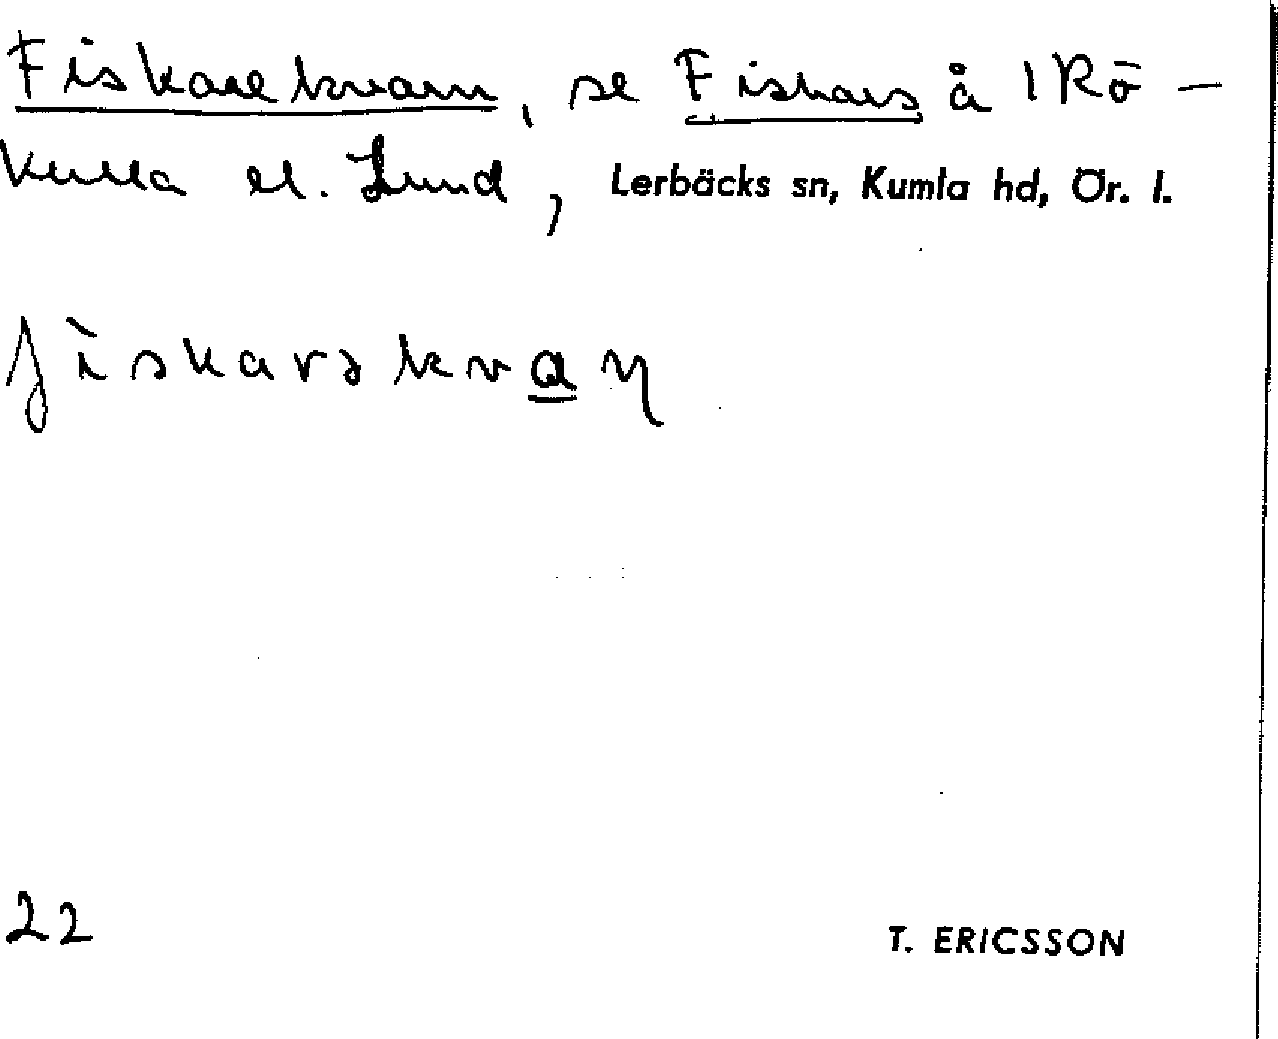 Fiskarekvarn, se Fiskars å 1 Rö-
kulla el. Lund, Lerbäcks sn, Kumla hd, Ör. l.
fìskarskvaŋ
22 T. ERICSSON